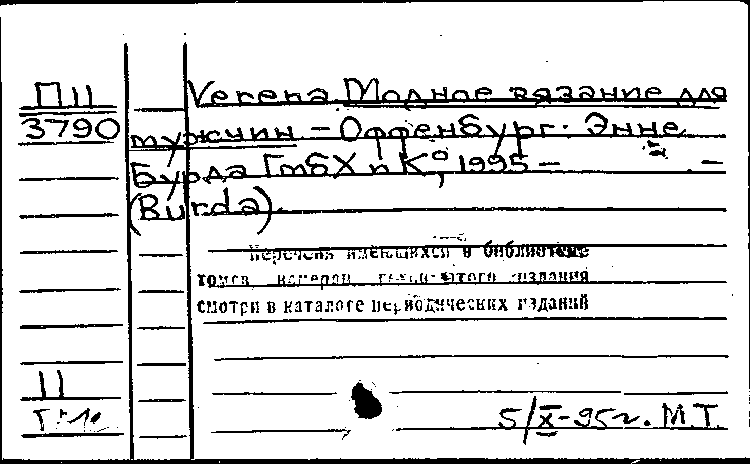 П11 Verena Модное вязание для
3790 мужчин – Оффенбург: Энне
Бурда ГмбХ и К°, 1995 – –
(Burda)
Перечень имеющихся в библиотеке
томов номеров издания
смотри в каталоге периодических изданий
11
5/X-95г. М.Т.